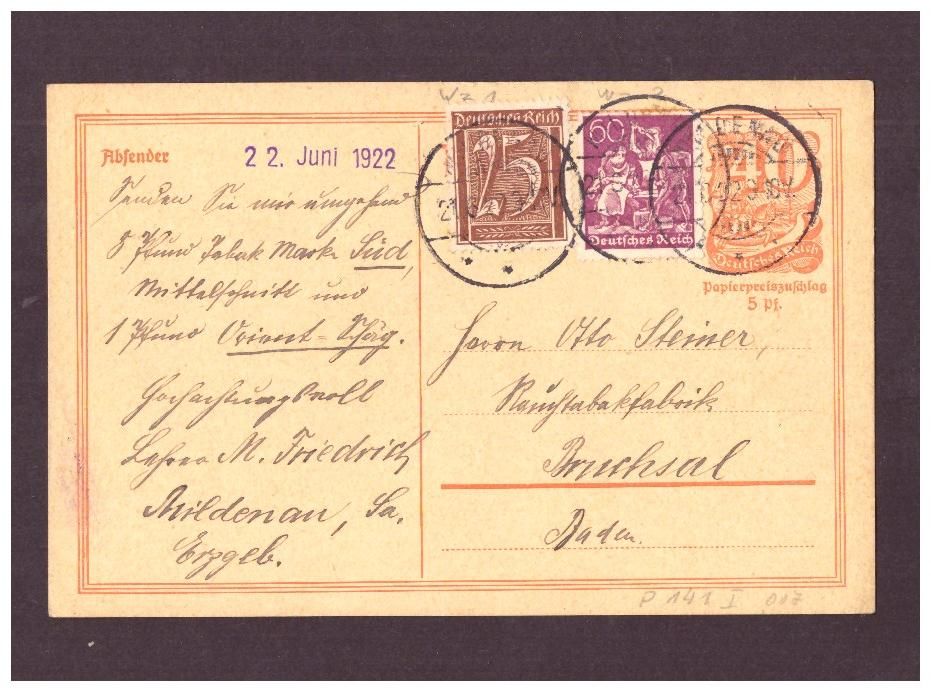 Wz 1
Wz 2
Absender
22. Juni 1922
Senden Sie mir umgehend
8 Pfund Tabak Marke Süd,
Mittelschnitt und
1 Pfund Orient=Schäg.
Hochachtungsvoll
Lehrer M. Friedrich
Mildenau, Sa.
Erzgeb.
Deutsches Reich
75
60
Deutsches Reich
MILDENAU
40
Deutsches Reich
Papierpreiszuschlag
5 Pf.
Herrn Otto Steiner,
Rauchtabakfabrik
Bruchsal
Baden.
P 141 I